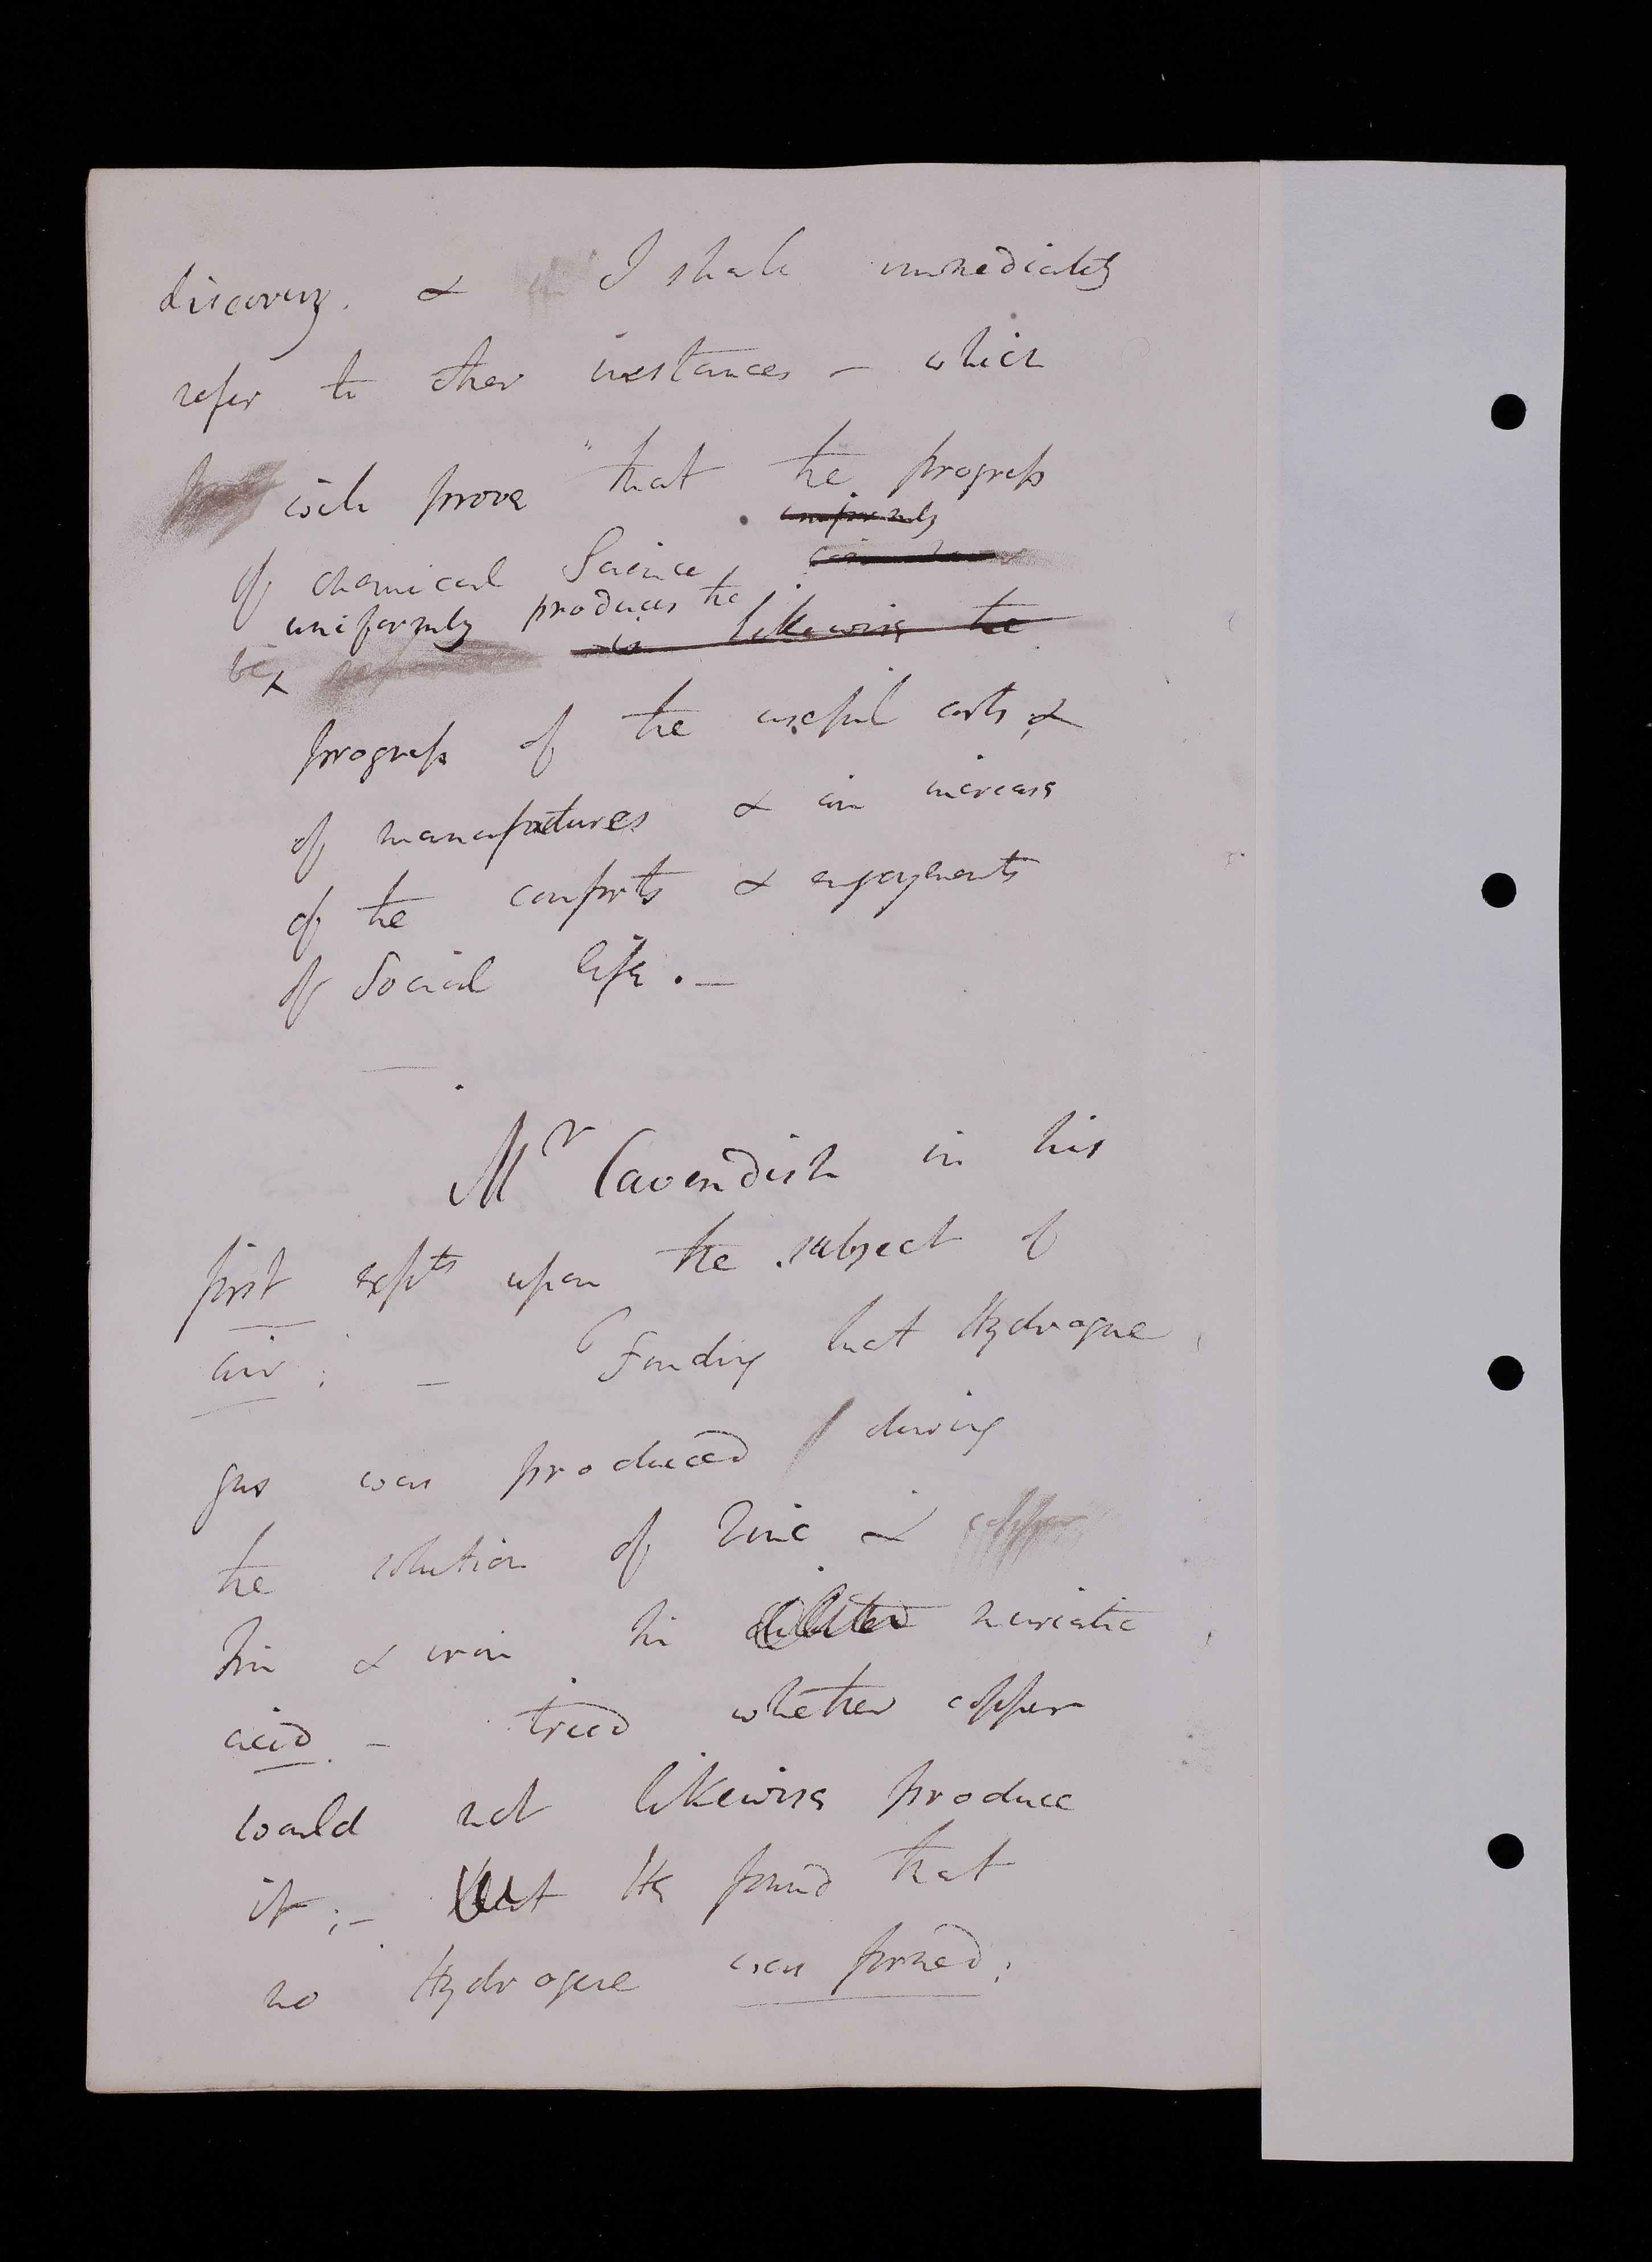 discovery. & I shall immediately
refer to other instances – which
will prove "that the progress
uniformly
of chemical Science
uniformly produces the
is likewise the
be
progress of the useful arts &
of manufactures & an increase
of the comforts & enjoyments
of Social life. –
Mr Cavendish in his
first expts upon the subject of
air; – Finding that Hydrogene
gas was produced during
the solution of Zinc & copper
Tin & iron in diluted muriatic
acid. – tried whether copper
would not likewise produce
it; – but He found that
no Hydrogene was formed;